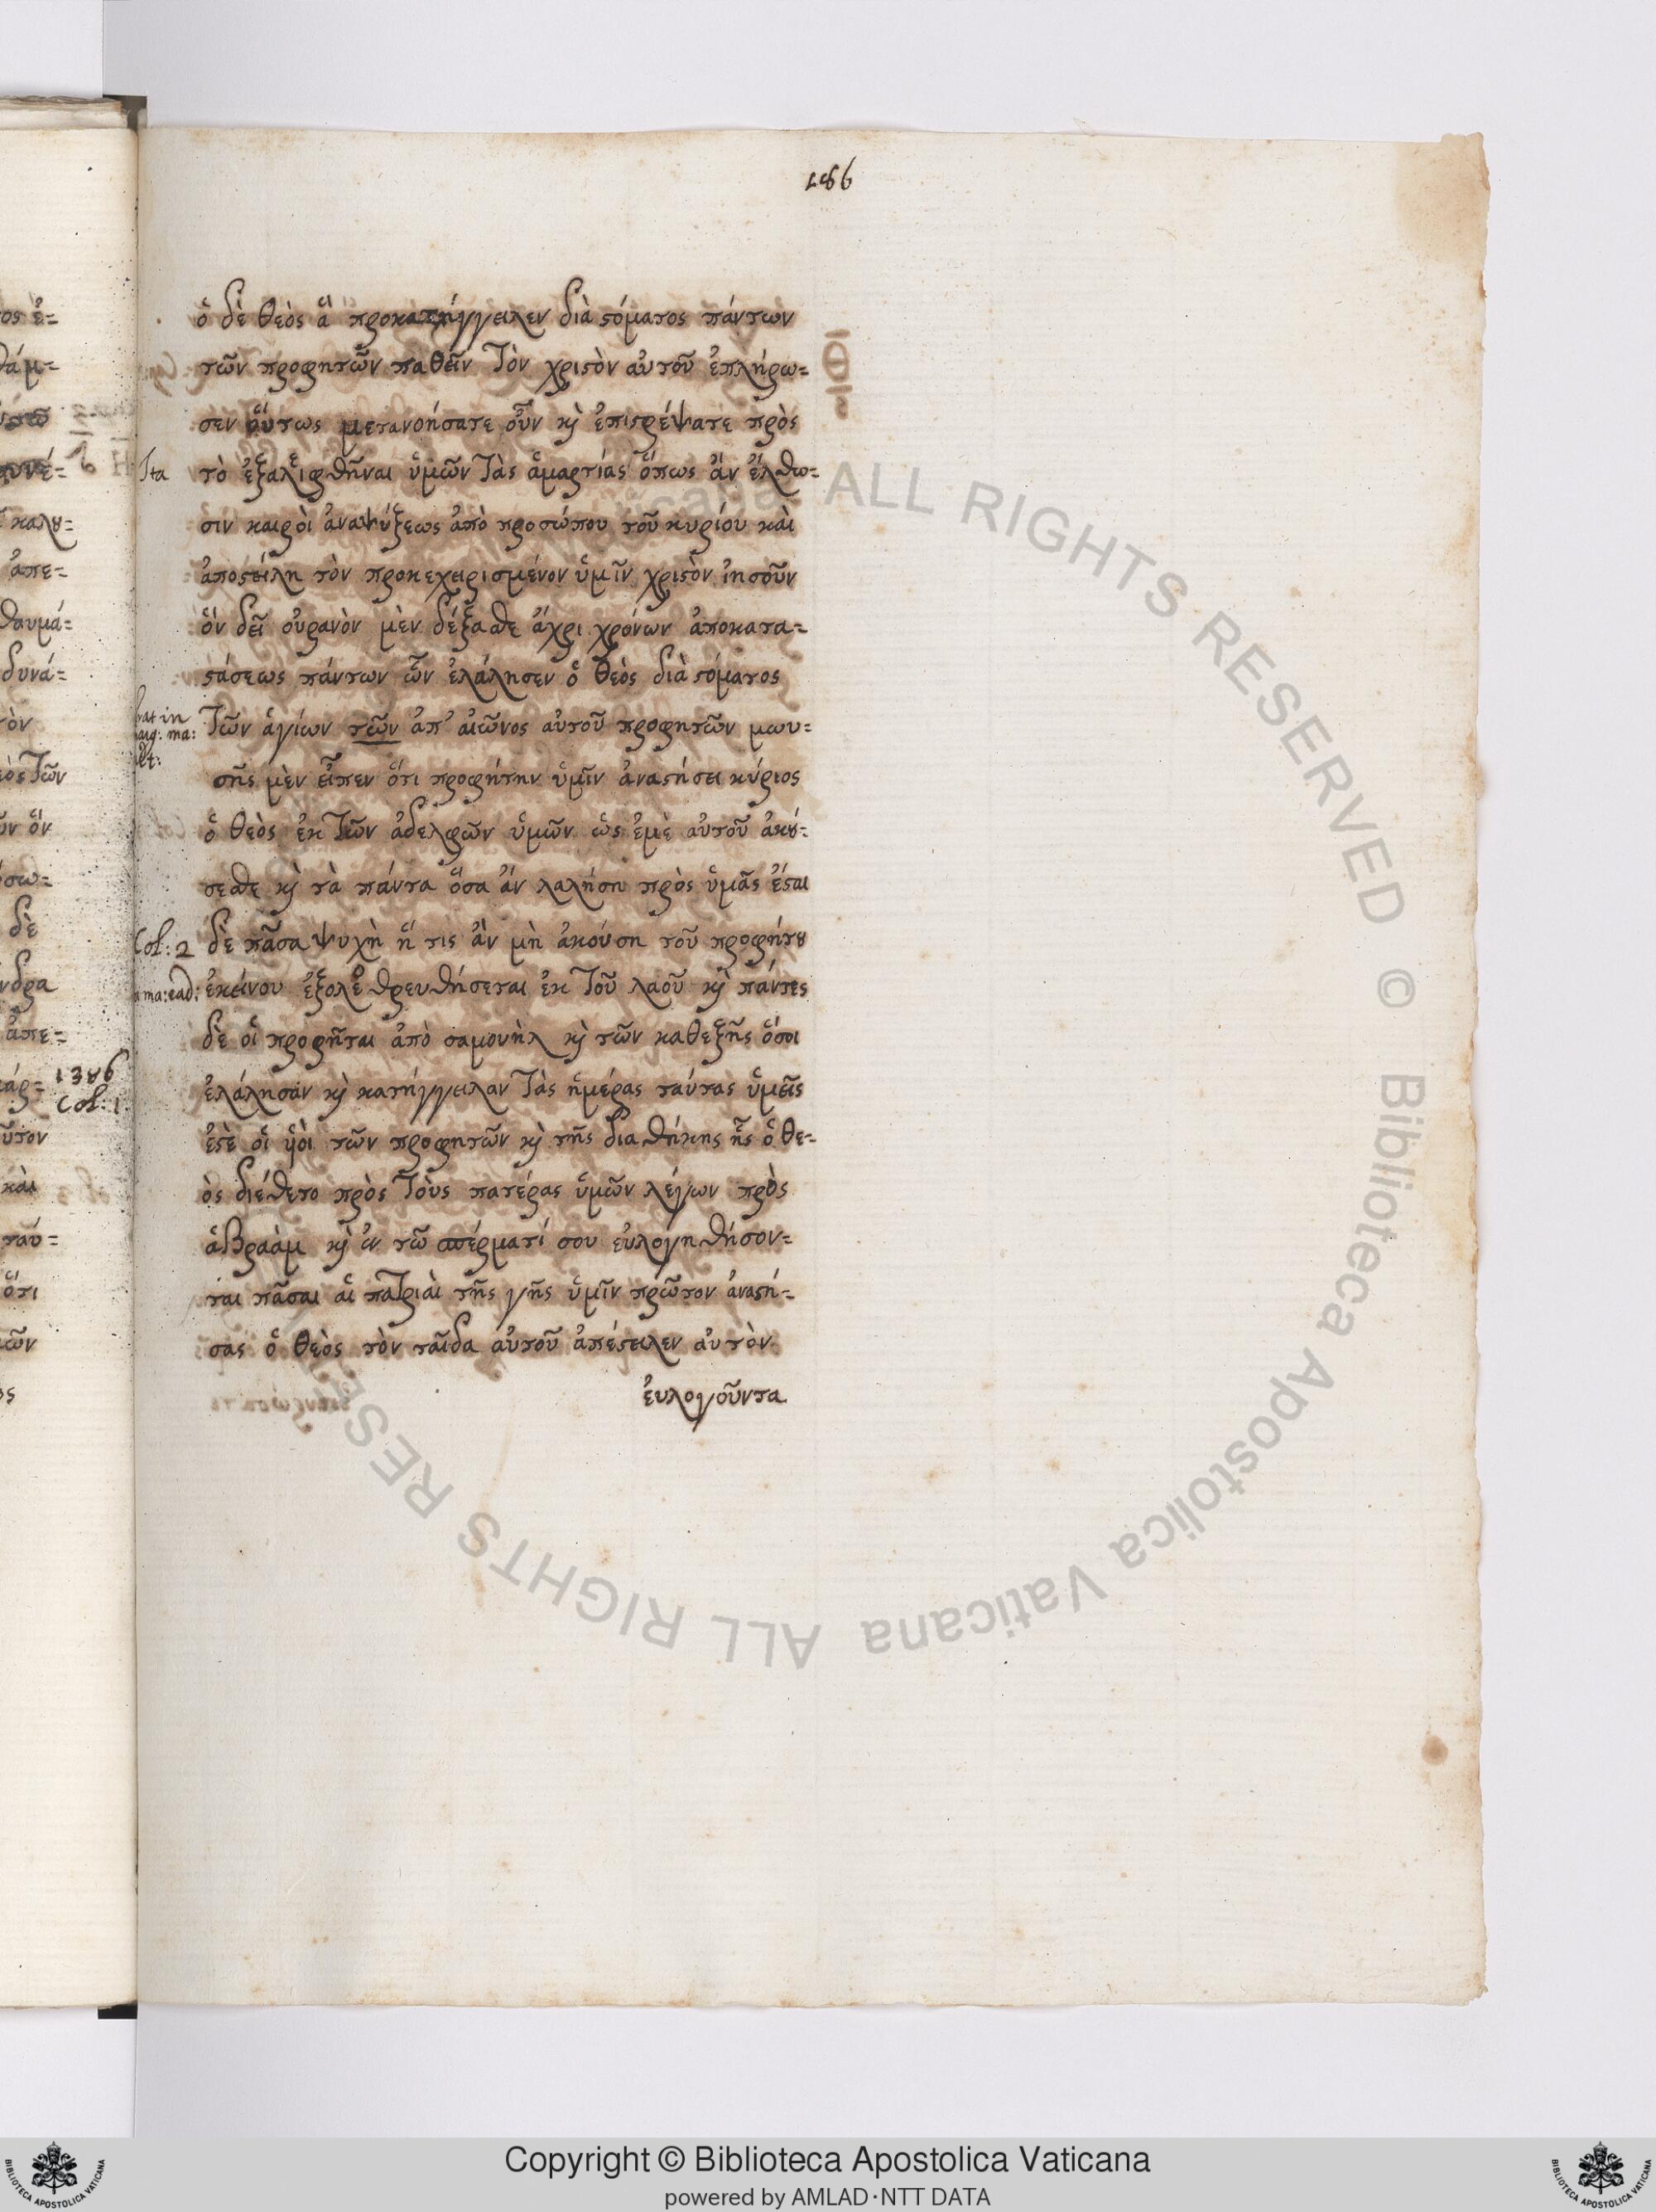 186
ὁ δὲ θεὸς ἃ προκατήγγειλεν διὰ ϛόματος πάντων
τῶν προφητῶν παθεῖν τὸν χριϛὸν αὐτοῦ ἐπλήρω=
σεν οὕτως μετανοήσατε οὖν κὶ ἐπιϛρέψατε πρὸς
Ita τὸ ἐξαλιφθῆναι ὑμῶν τὰς ἁμαρτίας ὅπως ἂν ἔλθω=
σιν καιροὶ ἀναψύξεως ἀπὸ προσώπου τοῦ κυρίου καὶ
ἀποϛείλη τὸν προκεχειρισμένον ὑμῖν χριϛὸν ἰησοῦν
ὃν δεῖ οὐρανὸν μὲν δέξαθε ἄχρι χρόνων ἀποκατα=
ϛάσεως πάντων ὧν ἐλάλησεν ὁ θεὸς διὰ ϛόματος
τῶν ἁγίων τῶν ἀπ' αἰῶνος αὐτοῦ προφητῶν μωυ=
σῆς μὲν εἶπεν ὅτι προφήτην ὑμῖν ἀναϛήσει κύριος
ὁ θεὸς ἐκ τῶν ἀδελφῶν ὑμῶν ὡς ἐμὲ αὐτοῦ ἀκȣ́=
σεθε κὶ τὰ πάντα ὅσα ἂν λαλήση πρὸς ὑμᾶς ἔϛαι
Col: 2 δὲ πᾶσα ψυχὴ ἥ τις ἂν μὴ ἀκούση τοῦ προφήτȣ
ma: ead: ἐκείνου ἐξολεθρευθήσεται ἐκ τοῦ λαοῦ κὶ πάντες
δὲ οἱ προφῆται ἀπὸ σαμουὴλ κὶ τῶν καθεξῆς ὅσοι
1386
Col: 1
ἐλάλησαν κὶ κατήγγειλαν τὰς ἡμέρας ταύτας ὑμεῖς
ἐϛὲ οἱ ὑοὶ τῶν προφητῶν κὶ τῆς διαθήκης ἧς ὁ θε=
ὸς διέθετο πρὸς τοὺς πατέρας ὑμῶν λέγων πρὸς
ἀβραὰμ κὶ ἐν τῶ σπέρματί σου εὐλογηθήσον=
ται πᾶσαι αἱ πατριαὶ τῆς γῆς ὑμῖν πρῶτον ἀναϛή=
σας ὁ θεὸς τὸν παῖδα αὐτοῦ ἀπέϛειλεν αὐτὸν
ἐυλογοῦντα
© Biblioteca Apostolica Vaticana ALL RIGHTS RESERVED
Copyright © Biblioteca Apostolica Vaticana
powered by AMLAD·NTT DATA
BIBLIOTECA APOSTOLICA VATICANA
BIBLIOTECA APOSTOLICA VATICANA